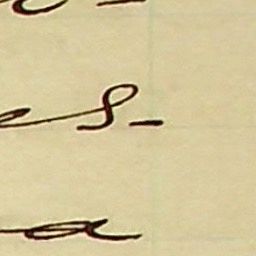 es-
a